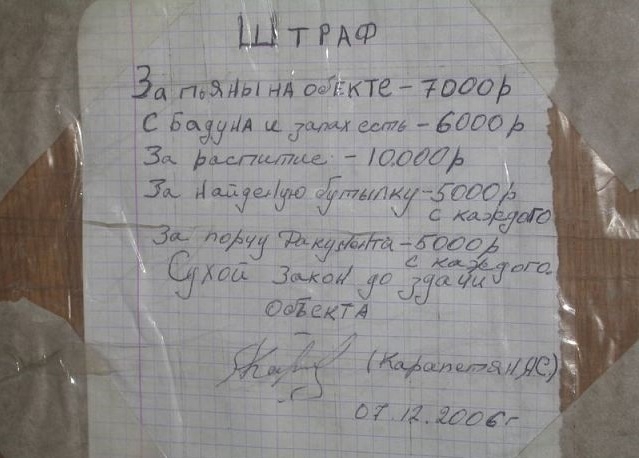 ШТРАФ
За пьяны на обекте - 7000р
С бадуна и запах есть - 6000р
За распитие - 10.000р
За найденую бутылку - 5000р
с каждого
За порчу Факумента - 5000р
с каждого
Сухой закон до здачи
объекта
(Карапетян, А.С.)
07.12.2006г